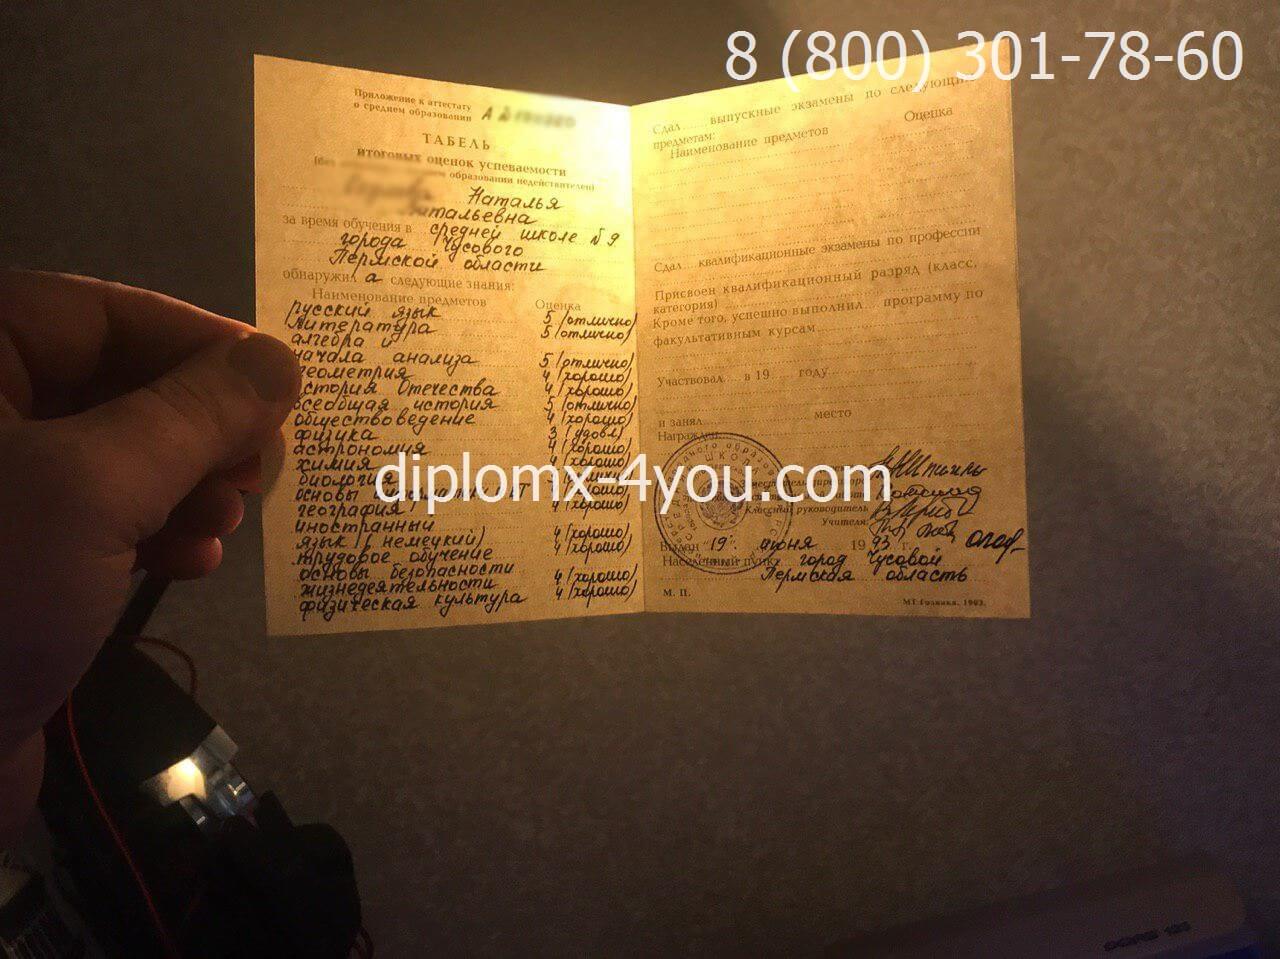 8 (800) 301-78-60
Приложение к аттестату
о среднем образовании А
ТАБЕЛЬ
итоговых оценок успеваемости
(без образовании недействителен)
Наталья
за время обучения в средней школе №9
города Чусового
Пермской области
обнаружила следующие знания:
Наименование предметов Оценка
русский язык 5 (отлично)
литература 5 (отлично)
алгебра и
начала анализа 5 (отлично)
геометрия 4 (хорошо)
история Отечества 4 (хорошо)
всеобщая история 5 (отлично)
обществоведение 4 (хорошо)
физика 3 (удовл)
астрономия 4 (хорошо)
химия 4 (хорошо)
биология
основы
география 4 (хорошо)
иностранный
язык (немецкий) 4 (хорошо)
трудовое обучение 4 (хорошо)
основы безопасности
жизнедеятельности 4 (хорошо)
физическая культура 4 (хорошо)
Сдал выпускные экзамены по следующим
предметам:
Наименование предметов Оценка
Сдал квалификационные экзамены по профессии
Присвоен квалификационный разряд (класс,
категория)
Кроме того, успешно выполнил программу по
факультативным курсам
Участвовал в 19 году
и занял место
Награжден
diplomx-4you.com
Классный руководитель
Учителя:
Выдан "19" июня 1993 г.
Населенный пункт город Чусовой
Пермская область
М. П.
МТ Гознака. 1992.